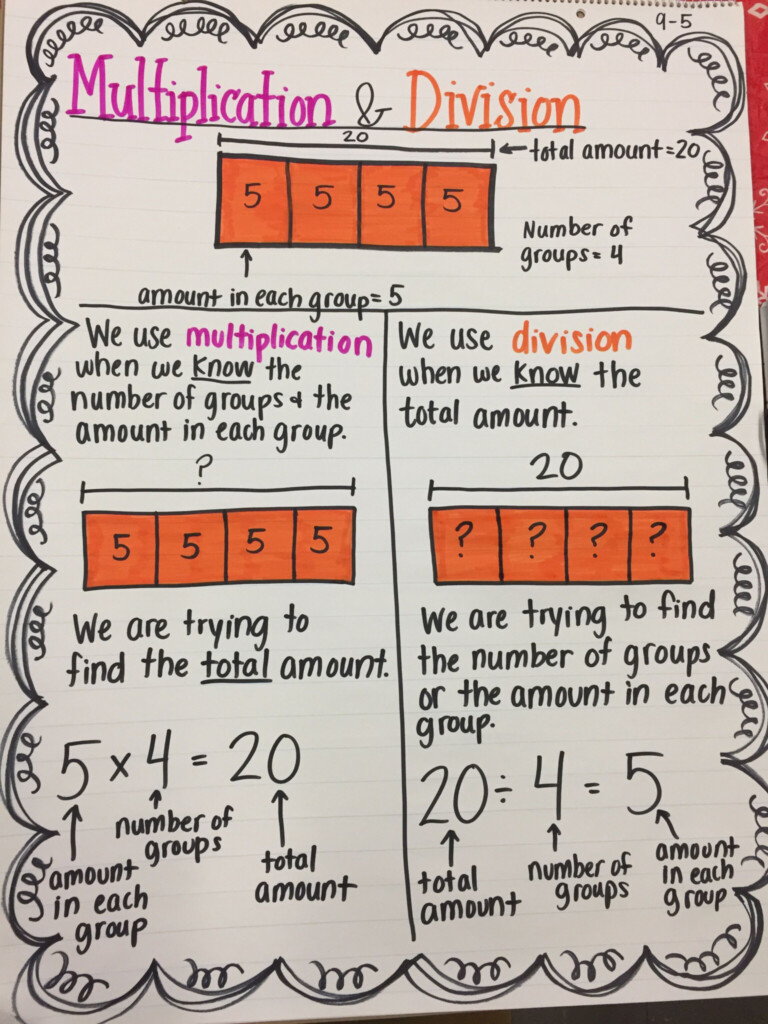 9-5
Multiplication & Division
20
←total amount=20
5 5 5 5
Number of
groups= 4
amount in each group= 5
We use multiplication
when we know the
number of groups & the
amount in each group.
?
5 5 5 5
We are trying to
find the total amount.
5 x 4 = 20
number of
groups
total
amount
amount
in each
group
We use division
when we know the
total amount.
20
? ? ? ?
We are trying to find
the number of groups
or the amount in each
group.
20 ÷ 4 = 5
total
amount
number of
groups
amount
in each
group